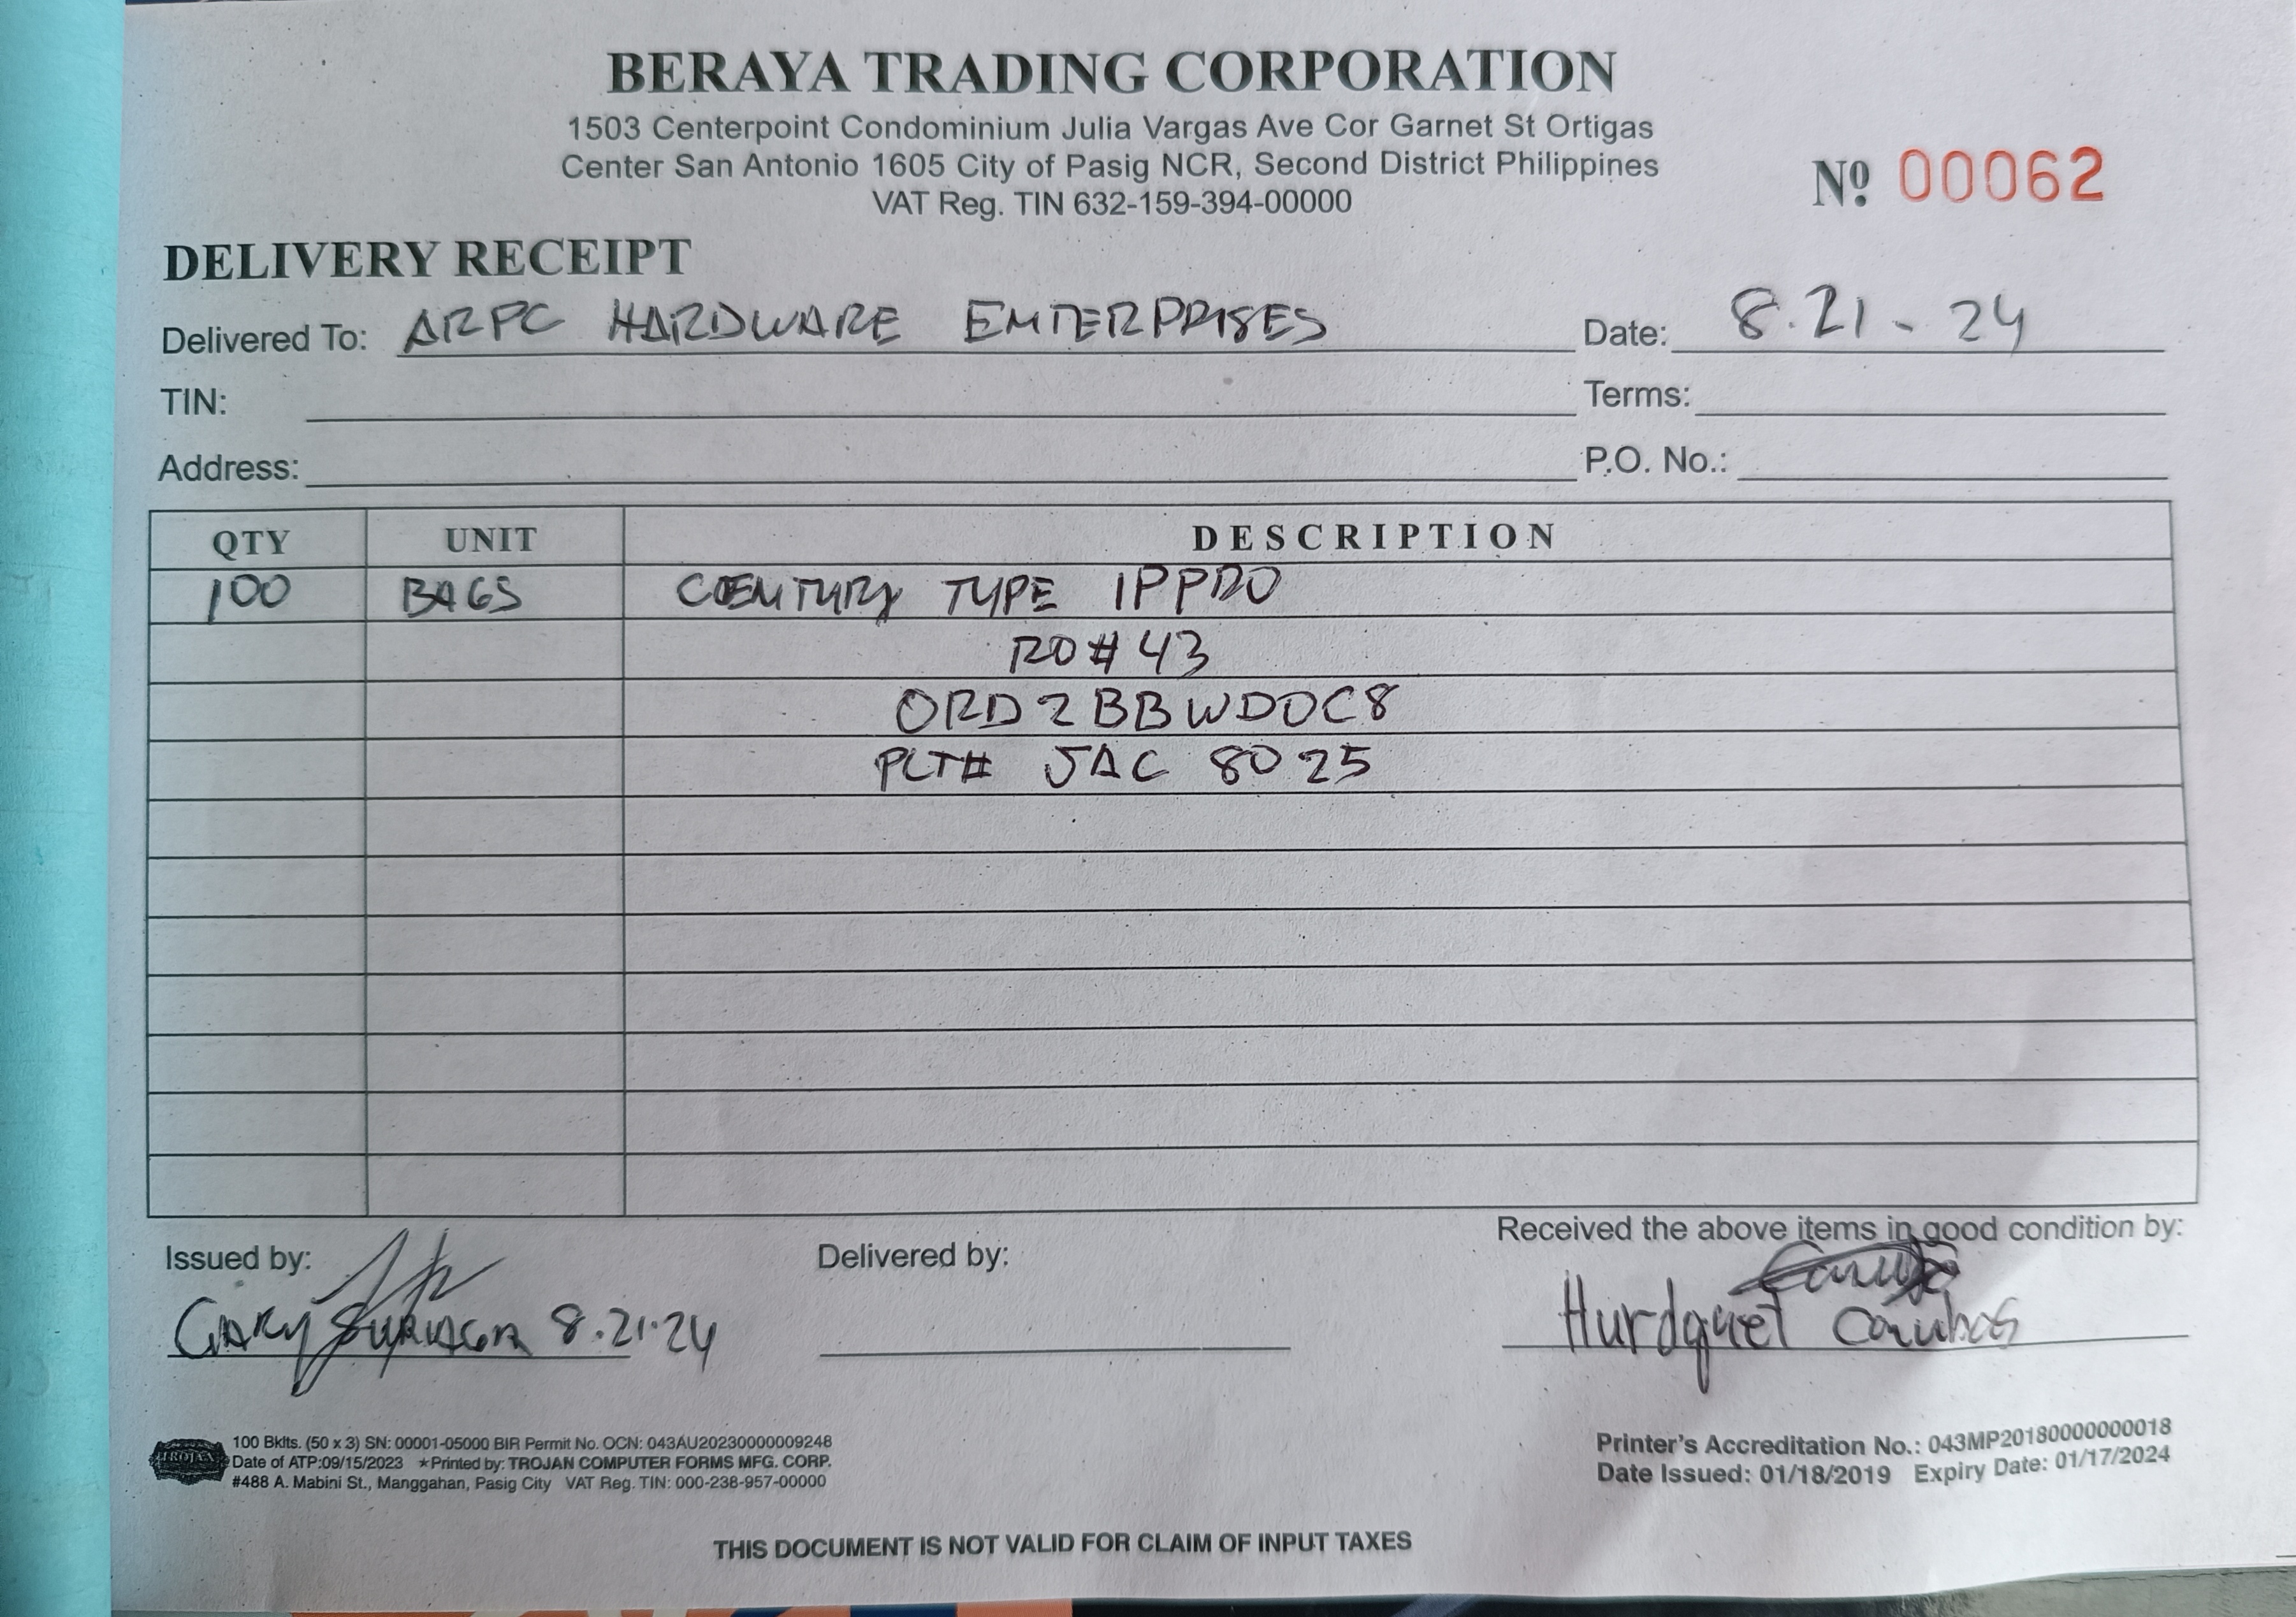 BERAYA TRADING CORPORATION
1503 Centerpoint Condominium Julia Vargas Ave Cor Garnet St Ortigas
Center San Antonio 1605 City of Pasig NCR, Second District Philippines
VAT Reg. TIN 632-159-394-00000
Nº 00062
DELIVERY RECEIPT
Delivered To: ARPC HARDWARE ENTERPRISES Date: 8.21-24
TIN: Terms:
Address: P.O. No.:
QTY UNIT DESCRIPTION
100 BAGS CENTURY TYPE 1PPRO
RO# 43
ORD2BBWDOC8
PLT# JAC 8025
Received the above items in good condition by:
Issued by: Delivered by:
GARY 8.21.24
TROJAN
100 Bklts. (50 x 3) SN: 00001-05000 BIR Permit No. OCN: 043AU20230000009248
Date of ATP:09/15/2023 ★Printed by: TROJAN COMPUTER FORMS MFG. CORP.
#488 A. Mabini St., Manggahan, Pasig City VAT Reg. TIN: 000-238-957-00000
Printer's Accreditation No.: 043MP20180000000018
Date Issued: 01/18/2019 Expiry Date: 01/17/2024
THIS DOCUMENT IS NOT VALID FOR CLAIM OF INPUT TAXES